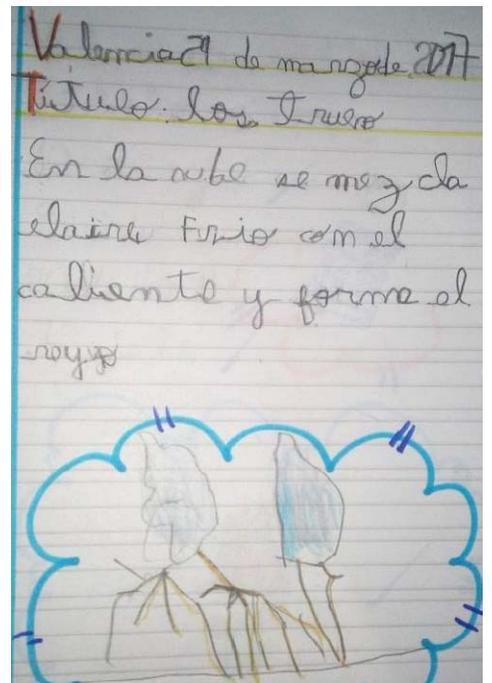 Valencia 21 de marzo de 2017
Título: los Trueno
En la nube se mezcla
elaire Frio con el
caliente y forma el
royyo